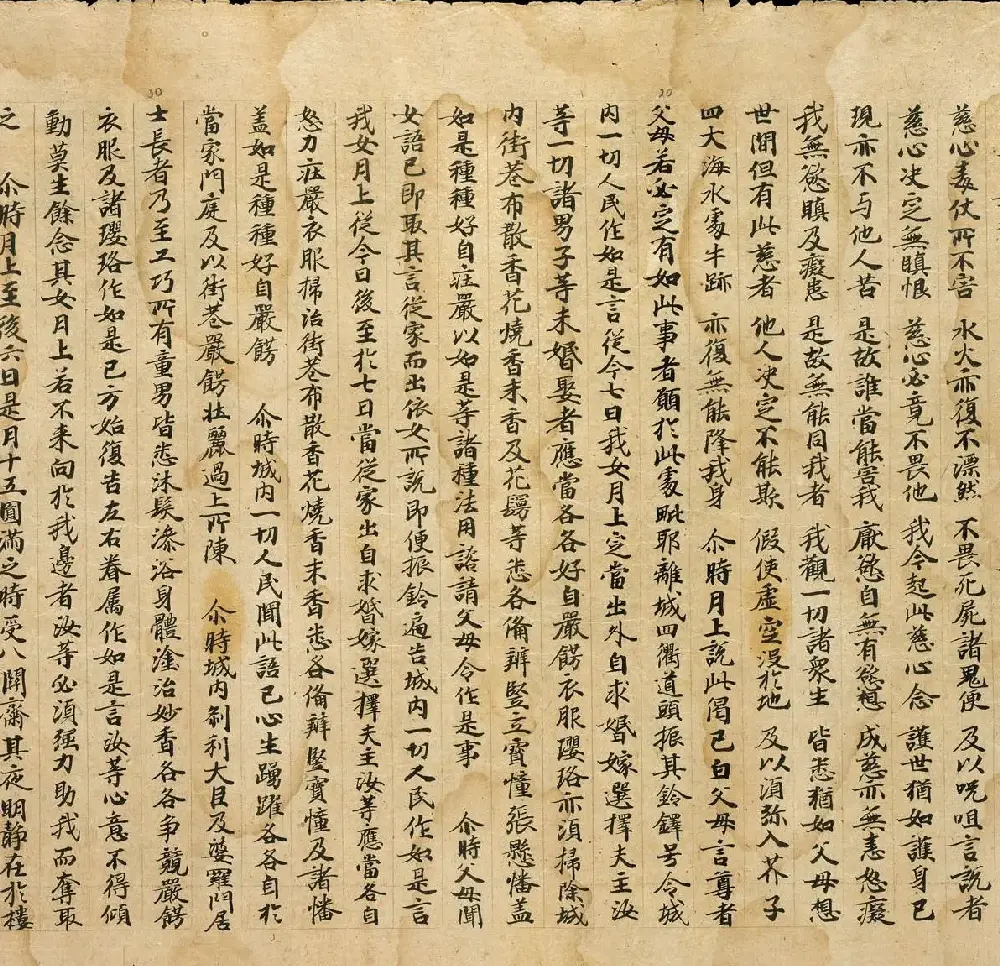 慈心毒仗所不害 水火亦復不漂然 不畏死屍諸鬼便 及以呪咀言說者
慈心決定無瞋恨 慈心必竟不畏他 我今起此慈心念 護世猶如護身已
現亦不与他人苦 是故誰當能害我 厭慾自無有慾想 成慈亦無恚怒癡
我無慾瞋及癡恚 是故無能同我者 我觀一切諸衆生 皆悉猶如父母想
世間但有此慈者 他人決定不能欺 假使虛空沒於地 及以須弥入芥子
四大海水處牛跡 亦復無能降我身 尒時月上說此偈已白父母言尊者
父母若必定有如此事者願於此處毗耶離城四衢道頭振其鈴鐸号令城
內一切人民作如是言從今七日我女月上定當出外自求婚嫁選擇夫主汝
等一切諸男子等未婚娶者應當各各好自嚴餝衣服瓔珞亦須掃除城
內街巷布散香花燒香末香及花鬘等悉各俻辦竪立寶幢張懸幡蓋
如是種種好自庄嚴以如是等諸種法用諮請父母令作是事 尒時父母聞
女語已即取其言從家而出依女所說即便振鈴遍告城內一切人民作如是言
我女月上從今日後至於七日當從家出自求婚嫁選擇夫主汝等應當各自
怒力庄嚴衣服掃治街巷布散香花燒香末香悉各俻辦竪寶幢及諸幡
蓋如是種種好自嚴餝 尒時城內一切人民聞此語已心生踴躍各各自於
當家門庭及以街巷嚴餝壯麗過上所陳 尒時城內剎利大臣及婆羅門居
士長者乃至工巧所有童男皆悉沐髮澡浴身體塗治妙香各各爭競嚴餝
衣服及諸瓔珞作如是已方始復告左右眷属作如是言汝等心意不得傾
動莫生餘念其女月上若不來向於我邊者汝等必須強力助我而奪取
之 尒時月上至後六日是月十五圓滿之時受八關齋其夜明静在於樓